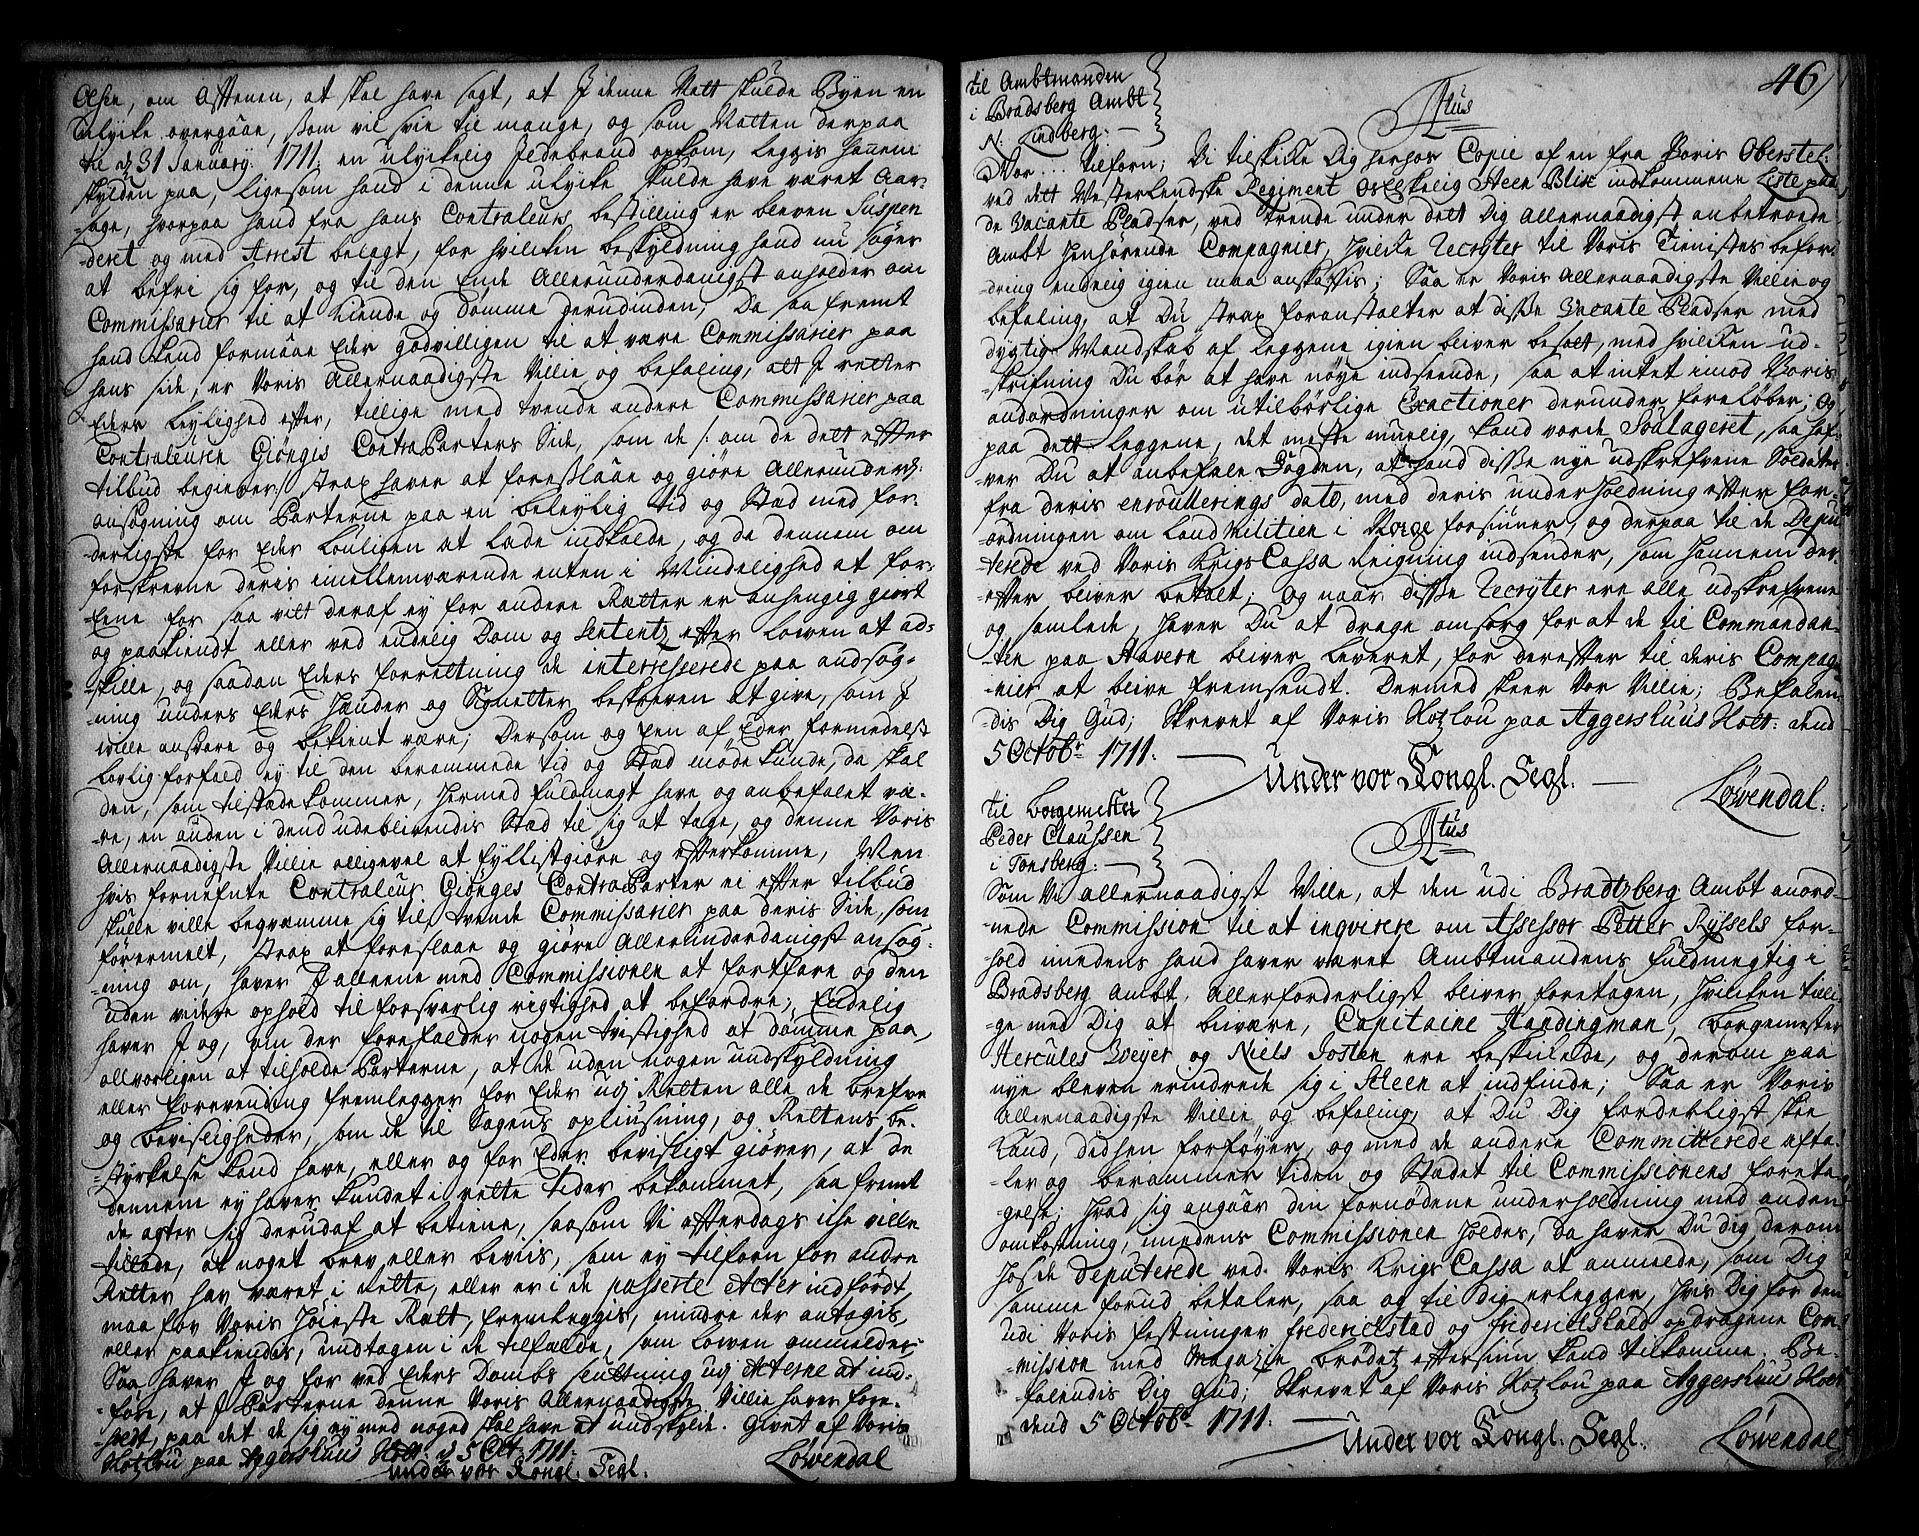 Olsen, om Afftenen, at skal have sagt, at I denne Natt skulde Byen en
Ulycke overgaae, som vil svie til mange, og som Natten derpaa
til d 31 January: 1711: en ulyckelig Ildebrand opkom, leggis hannem
skylden paa, ligesom hand i denne ulycke skulde have været Aar-
-sage, hvorpaa hand fra hans Contraleurs bestilling er bleven Suspen
-deret og med Arrest belagt, for hvilken beskyldning hand nu søger
at befrie sig for, og til den Ende Allerunderdanigst anholder om
Commissarier til at kiende og dømme herudinden, Da saa fremt
hand kand formaae Eder godvilligen til at være Commissarier paa
hans side, er Voris Allernaadigste Villie og befaling, att I retter
Eders leylighed efter, tillige med tvende andre Commissarier paa
Contraleuren Giøngis ContraParters Side, som de /: om de dett efter
tilbud begierer :/ strax haver at foreslaae og giøre Allerunderd:
ansøgning om Parterne paa en beleylig tid og Stad med for-
-derligste for Eder Louligen at lade indkalde, og da dennem om
forskrevne deris imellemværende enten i Mindelighed at for-
-Eene for saa vitt deraf ey for andre Rætter er anhengig giort
og paakiendt eller ved endelig Dom og Sententz efter Lowen at ad-
-skille, og saadan Eders forretning de interresserede paa andsøg-
-ning unders Eders Hænder og Signetter beskreven at give, som I
wille ansvare og bekient være; Dersom og een af Eder formedelst
lovlig forfald ey til den berammede tid og Stad møde kunde, da skal
den, som tilstæde kommer, hermed fuldmagt have og anbefalet væ-
-re, en anden i dend udeblivendis Stad til sig at tage, og denne Voris
Allernaadigste Villie alligevel at fyllistgiøre og efterkomme, Men
hvis fornefnte Contraleur Giønges ContraParter ei efter tilbud
skulle ville begvæmme sig til tvende Commissarier paa deris Side, som
førermelt, strax at foreslaae og giøre Allerunderdanigst ansøg-
-ning om, haver I alleene med Commissionen at fortfare og den
uden videre ophold til forsvarlig rigtighed at befordre; Endelig
haver I og, om der forefalder nogen tvistighed at dømme paa,
allvorligen at tilholde Parterne, at de uden nogen undskyldning
eller forevending fremlegger for Eder udj Retten alle de brefve
og bevisligheder, som de til Sagens oplysning, og Rettens be-
-styrkelse kand have, eller og for Eder bevisligt giører, at de
dennem ey haver kundet i rette tider bekommet, saa fremt
de agter sig derudaf at betiene, saasom Vi efterdags icke ville
tillade, at noget brev eller beviis, som ey tilforn for andre
Retter har været i Rette, eller er i de passerte Acter indført,
maa for Voris Høieste Rætt, fremleggis, mindre der antagis,
eller paakiendis, undtagen i de tilfælde, som Lowen ommelder
Saa haver I og for ved Eders Dombs slutning udj Acterne at ind-
-føre, at I Parterne denne Voris Allernaadigste Villie haver fore-
-holt, paa det de sig ey med noged skal have at undskylde. Givet af Voris
Hotzlou paa Aggershuus Slott: d 5 Oct: 1711:
Under vor Kongl. Segl.
Løvendal
46
til Ambtmanden
i Bradsberg Ambt
N: Lindberg:
Vor ... tilforn; Vi tilskicke Dig herhos Copie af en fra Voris Oberstel:
ved dett Vesterlendske Regiment Oselskelig Steen Blix indkommene Liste paa
de vacante Pladser, ved trende under dett Dig Allernaadigst anbetroede
Ambt henhørende Compagnier, hvilcke Recryter til Voris Tienistes befor-
dring endelig igien maa anskaffis; Saa er Voris Allernaadigste Villie og
befaling, at Du strax foranstalter at disse vacante Pladser med
dygtig Mandskab af leggene igien bliver besatt, med hvilken ud-
-skrifning Du bør at have nøye indseende, saa at intet imod Voris
andordninger om utilbørlige Exactioner derunder foreløber; og
paa dett leggene, det meste muelig, kand vorde Soulageret, saa haf-
-ver Du at anbefale Fogden, at hand disse nye udskrefvene Soldater
fra deris enroullerings dato, med deris underholdning efter for-
ordningen om Land Militien i Norge forsiuner, og derpaa til de Depu
-terede ved Voris KrigsCassa Reigning indsender, som hannem der-
-efter bliver betalt; Og naar disse Recryter ere alle udskrefvene
og samlede, haver Du at drage omsorg for at de til Commandan-
-ten paa Stavern bliver leveret, for derefter til deris Compag-
-nier at blive fremsendt. Dermed skeer Vor Villie; Befalen
dis Dig Gud; Skrevet af Voris Hotzlou paa Aggershuus Slott: dend
5 Octobr 1711:
Under vor Kongl. Segl.
Løvendal:
til Borgemester
Peder Claussen
i Tonsberg:
Som Vi allernaadigst Ville, at den udi Bradtzberg Ambt anord-
-nede Commission til at inqvirere om Assessor Petter Ryssels for-
-hold imedens hand haver været Ambtmandens fuldmegtig i
Bradsberg Ambt, allerforderligst bliver foretagen, hvilken tilli-
-ge med Dig at bivære, Capitaine Handingman, borgemester
Hercules Weyer og Niels Josten ere beskickede, og derom paa
nye bleven erindrede sig i Skeen at indfinde; Saa er Voris
Allernaadigste Villie og befaling, at Du Dig fordeeligst skee
kand, dedhen forføyer, og med de andre Committerede afta-
-ler og berammer tiden og Stædet til Commissionens foreta-
-gelse; Hvad sig angaar den fornødene underholdning med anden
omkostning, imedens Commissionen holdes, da haver Du dig derom
hos de deputerede ved Voris KrigsCassa at anmelde, som Dig
samme forud betaler, saa og til dig erlegger, hvis Dig for den
udi Voris festninger friderichstad og friderichshald opdragene Com
-mission med Magazin brødetz eftersiun kand tilkomme. Be-
-falendis Dig Gud; Skrevet af Voris Hotzlou paa Aggershuus Slott
dend 5 Octobr 1711:
Under vor Kongl. Segl.
Løvendal